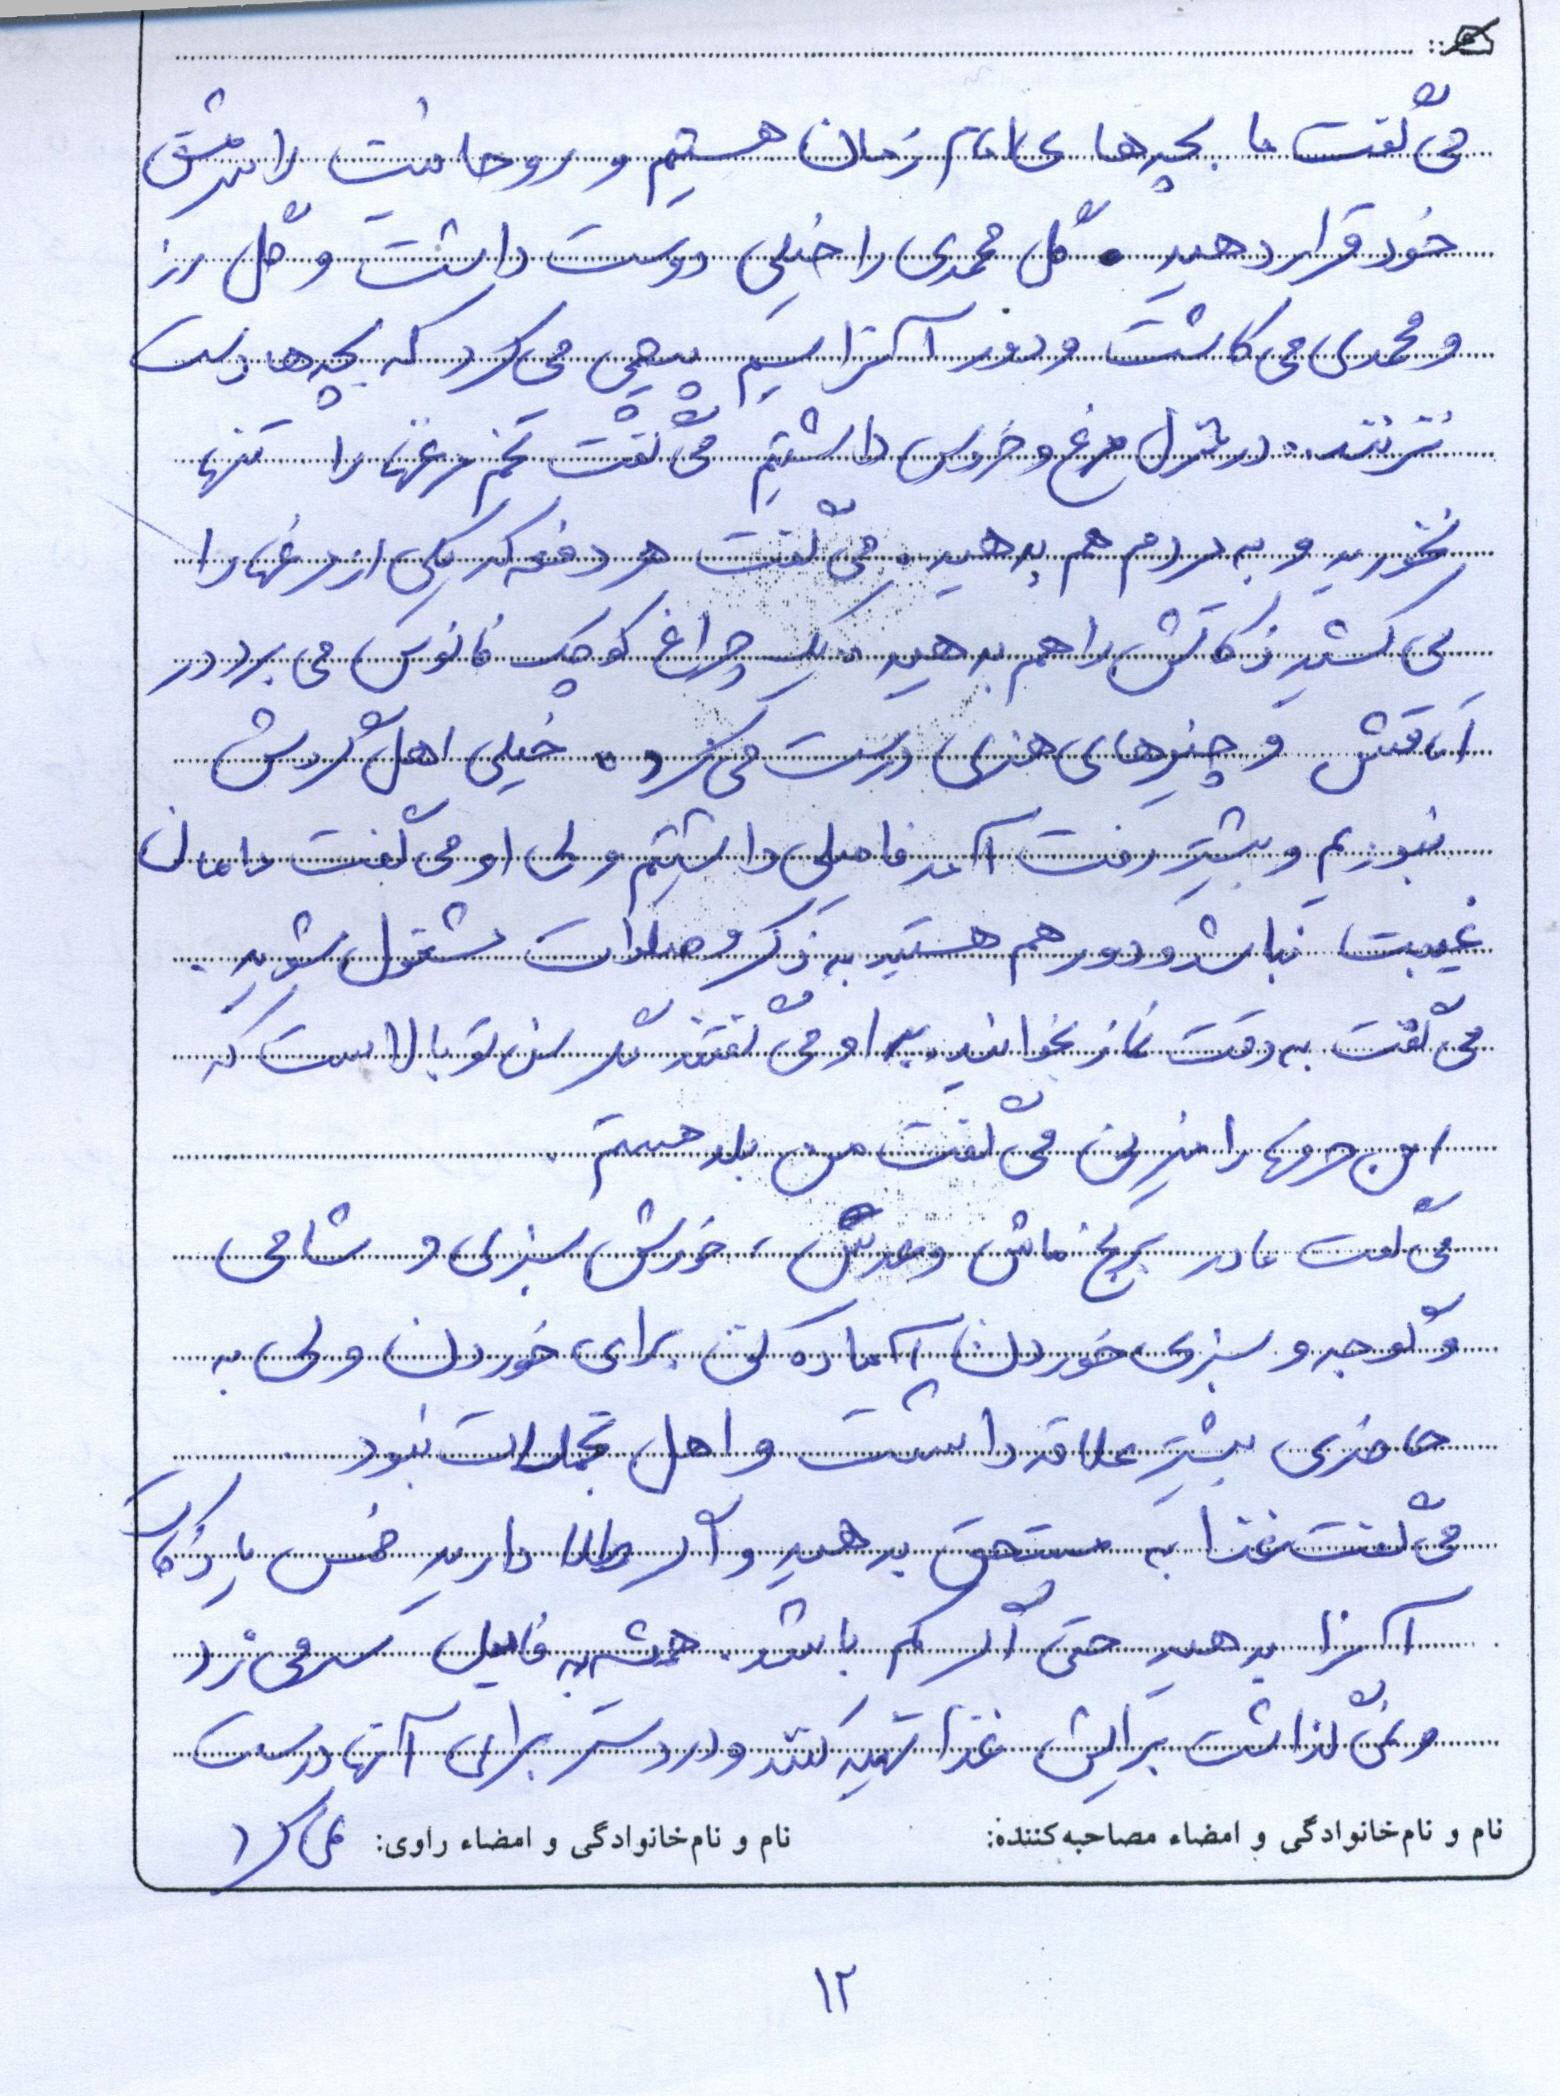 می‌گفت ما بچه‌های امام زمان هستیم و روحانیت را سرمشق
خود قرار دهید. گل محمدی را خیلی دوست داشت و گل رز
و محمدی می‌کاشت و دور آنرا سیم پیچی می‌کرد که بچه‌ها دست
نزنند. در منزل مرغ و خروس داشتیم می‌گفت تخم مرغها را تنها
نخورید و به مردم هم بدهید. می‌گفت هر دفعه که یکی از مرغها را
می‌کشید زکاتش را هم بدهید. یک چراغ کوچک فانوس می‌برد در
اتاقش و چیزهای هنری درست می‌کرد. خیلی اهل گردش
نبودیم و بیشتر رفت آمد فامیلی داشتیم ولی او می‌گفت مامان
غیبت نباشد و دور هم هستید به ذکر و صلوات مشغول شوید.
می‌گفت به وقت نماز بخوانید. به او می‌گفتند مگر سن تو بالاست که
این حرفها را میزنی می‌گفت من بلد هستم.
می‌گفت مادر برنج ماش و عدس، خورش سبزی و شامی
و گوجه و سبزی خوردن آماده کن برای خوردن ولی به
حاضری بیشتر علاقه داشت و اهل تجملات نبود
می‌گفت غذا به مستحق بدهید و اگر طلا دارید خمس یا زکات
آنرا بدهید حتی اگر کم باشد. همیشه به فامیل سر می‌زد
و نمی‌گذاشت برایش غذا تهیه کنند و دردسر برای آنها درست
نام و نام خانوادگی و امضاء مصاحبه کننده: نام و نام خانوادگی و امضاء راوی: نمی‌کرد
۱۲